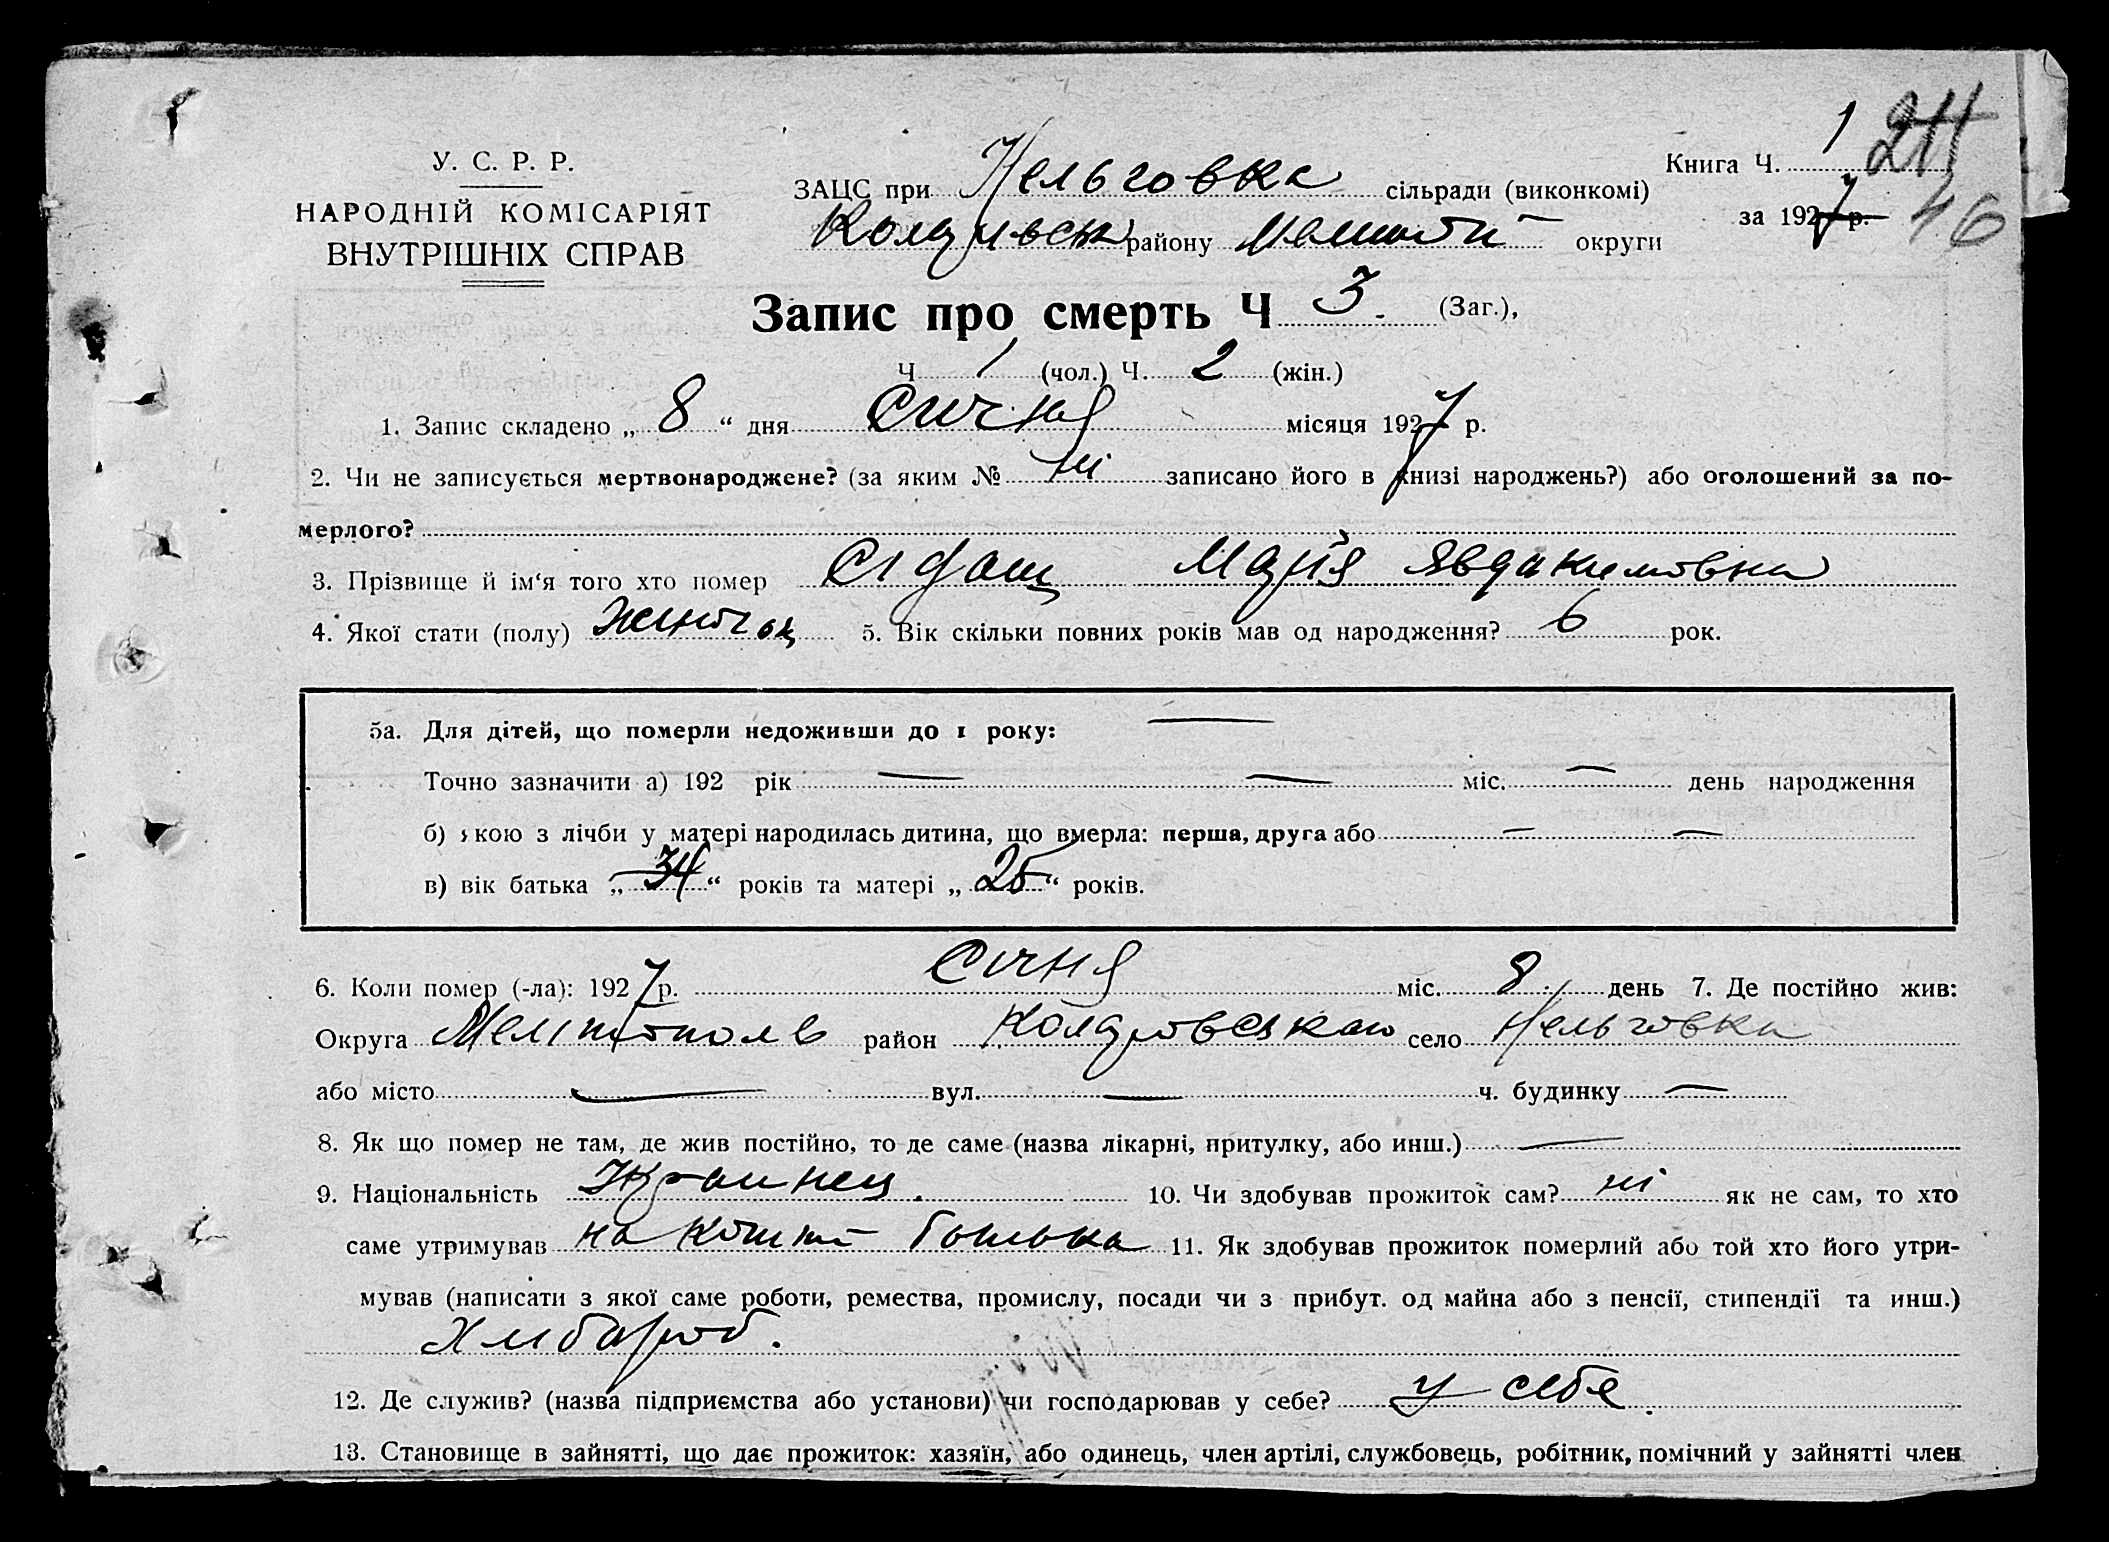 У. С. Р. Р.
НАРОДНІЙ КОМІСАРІЯТ
ВНУТРІШНІХ СПРАВ
Книга Ч. 1
за 1927 р. 46
ЗАЦС при Нельговка сільради (виконкомі)
району округи
Запис про смерть Ч 3. (Заг.),
Ч 1 (чол.) Ч. 2 (жін.)
1. Запис складено „ 8 “ дня Сичня місяця 1927 р.
2. Чи не записується мертвонароджене? (за яким № ні записано його в книзі народжень?) або оголошений за по-
мерлого?
3. Прізвище й ім‘я того хто помер Сідаш Марія Явдакимовна
4. Якої стати (полу) 5. Вік скільки повних років мав од народження? 6 рок.
5а. Для дітей, що померли недоживши до 1 року: —
Точно зазначити а) 192 рік — — міс. — день народження
б) якою з лічби у матері народилась дитина, що вмерла: перша, друга або — —
в) вік батька „ 34 “ років та матері „ 25 “ років.
6. Коли помер (-ла): 1927 р. Січня міс. 8 день 7. Де постійно жив:
Округа район село Нельговка
або місто — вул. — ч. будинку —
8. Як що помер не там, де жив постійно, то де саме (назва лікарні, притулку, або инш.) —
9. Національність 10. Чи здобував прожиток сам? ні як не сам, то хто
саме утримував на кошти батька 11. Як здобував прожиток померлий або той хто його утри-
мував (написати з якої саме роботи, ремества, промислу, посади чи з прибут. од майна або з пенсії, стипендії та инш.)
Хлібароб.
12. Де служив? (назва підприємства або установи) чи господарював у себе? у себе.
13. Становище в зайнятті, що дає прожиток: хазяїн, або одинець, член артілі, службовець, робітник, помічний у зайнятті член